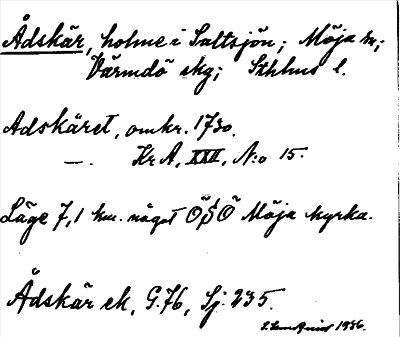 Ådskär, holme i Saltsjön; Möja sn;
Värmdö skg; Sthlms l.
Adskäret, omkr. 1730.
—. Kr A, XXII, N:o 15.
Läge 7,1 km. något ÖSÖ Möja kyrka.
Ådskär ek, G.76, Sj. 235.
1936.